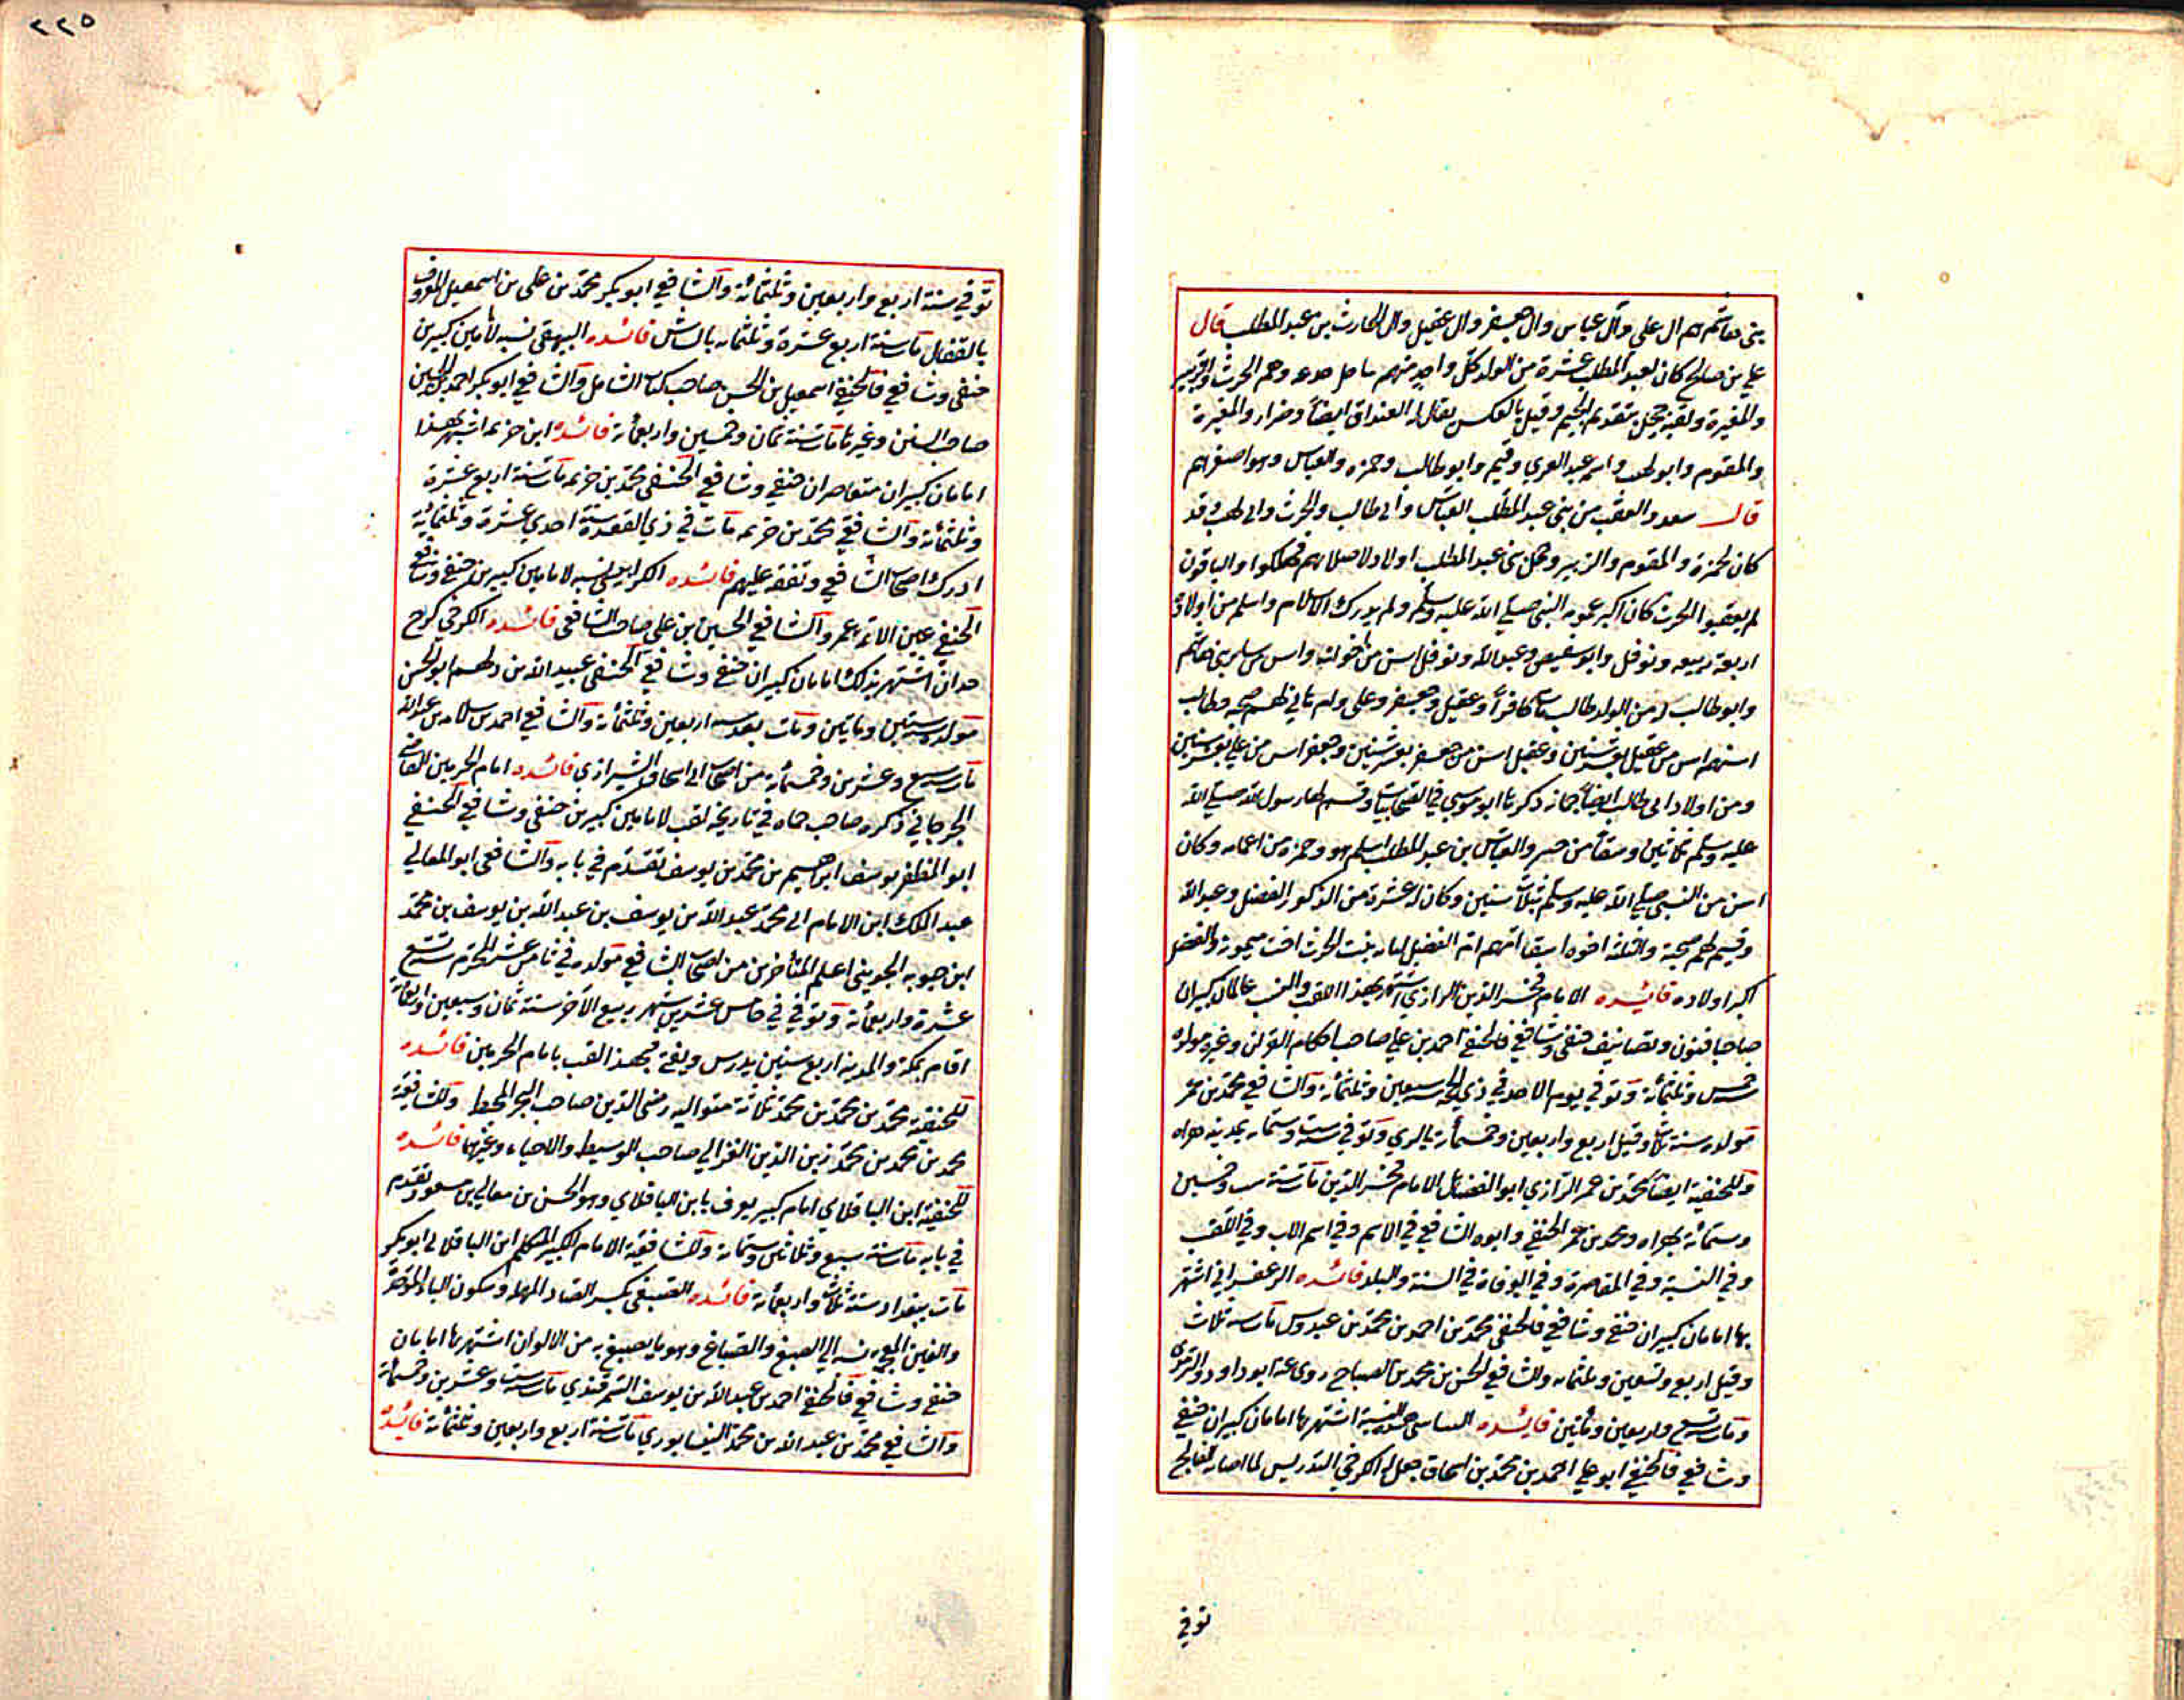 بنى هاشم هم ال على وآل عباس وال جعفر وال عقيل وال الحارث بن عبد المطلب قال
على بن صالح كان لعبد المطلب عشرة من الولد كل واحد منهم وهم الحرث والزبير
والمغيرة ولقبه حجل بتقديم الجيم وقيل بالعكس يقال له الغيداق ايضاً وضرار والمغيرة
والمقوم وابو لهب واسمه عبد العزى وقثم وابو طالب وحمزه والعباس وهو اصغرهم
قال والعقب من بنى عبد المطلب العباس وابى طالب والحرث وابى لهب وقد
كان لحمزة والمقوم والزبير وحجل بنى عبد المطلب اولاد لاصلابهم فهلكوا والباقون
لم يعقبوا الحرث كان اكبر عمومه النبى صلى الله عليه وسلم ولم يدرك الاسلام واسلم من اولاده
اربعة ربيعه ونوفل وابو سفين وعبد الله ونوفل اسن من اخوانه واسن من سلم بنى هاشم
وابو طالب له من الولد طالب مات كافراً وعقيل وجعفر وعلى وام هانى لهم صحبه وطالب
اسنهم اسن من عقيل بعشر سنين وعقيل اسن من جعفر بعشر سنين وجعفر اسن من على بعشر سنين
ومن اولاد ابى طالب ايضاً جمانه ذكرها ابو موسى في الصحابيات وقسم لها رسول الله صلى الله
عليه وسلم ثلاثين وسقا من خيبر والعباس بن عبد المطلب اسلم هو وحمزه من اعمامه وكان
اسن من النبى صلى الله عليه وسلم بثلاث سنين وكان له عشرة من الذكور الفضل وعبد الله
وقثم لهم صحبة اخوه امهم ام الفضل لبابه بنت الحرث اخت ميمونة والفضل
اكبر اولاده فائده الامام فخر الدين الرازى اشتهر بهذا اللقب والنسب عالمان كبيران
صاحبا فنون وتصانيف حنفى وشافعى فالحنفى احمد بن على صاحب احكام القرآن وغيره مولده
خمس وثلثمائة وتوفي يوم الاحد في ذي الحجه سنة سبعين وثلثمائة والشافعي محمد بن عمر
مولده سنة ثلاث وقيل اربع واربعين وخمسمائة بالرى وتوفي سنة ست وستمائه بمدينه هراه
وللحنفية ايضاً محمد بن عمر الرازى ابو الفضائل الامام فخر الدين مات سنة ست وخمسين
وستمائة بهراه ومحمد بن عمر الحنفي وابوه الشافعي في الاسم وفي اسم الاب وفي اللقب
وفي النسبة وفي المعاصرة وفي الوفاة في السنة والبلد فائده الزعفرانى اشتهر
بها امامان كبيران حنفى وشافعى فالحنفى محمد بن احمد بن محمد بن عبدوس مات سنة ثلاث
وقيل اربع وتسعين وثلثمائه والشافعى الحسن بن محمد بن الصباح روى عنه ابو داود والترمذى
ومات سنة تسع واربعين ومأتين فايده الشاسى هذه النسبة اشتهر بها امامان كبيران حنفى
وشافعى فالحنفي ابو على احمد بن محمد بن اسحاق جعل له الكرخى التدريس لما اصابه الفالج
توفي
٢٢٥
توفي سنة اربع واربعين وثلثمائة والشافعي ابو بكر محمد بن على بن اسمعيل المعروف
بالقفال مات سنة اربع عشرة وثلثمائه بالشاش فائده البيهقى نسبه لامامين كبيرين
حنفى وشافعى فالحنفي اسمعيل بن الحسن صاحب كتاب الشامل والشافعي ابو بكر احمد بن الحسين
صاحب السنن وغيرها مات سنة ثمان وخمسين واربعمائة فائدة ابن خزيمه اشتهر بهذا
امامان كبيران متعاصران حنفى وشافعى الحنفى محمد بن خزيمه مات سنة اربع عشرة
وثلثمائة والشافعي محمد بن خزيمه مات في ذى القعده سنة احدى عشرة وثلثمائة
ادرك اصحاب الشافعي وتفقه عليهم فائده الكرابيسى نسبه لامامين كبيرين حنفى وشافعى
الحنفي عين الائمه عمر والشافعي الحسين بن على صاحب الشافعى فائده الكرخى كرخ
جدان اشتهر بذلك امامان كبيران حنفى وشافعى الحنفى عبيد الله بن دلهم ابو الحسن
مولده سنة ستين ومايتين ومات بعد سنة اربعين وثلثمائة والشافعي احمد بن سلامه بن عبد الله
مات سنة سبع وعشرين وخمسمائة من اصحاب ابى اسحاق الشيرازى فائده امام الحرمين القاضى
الجرجانى ذكره صاحب حماه في تاريخه لقب لامامين كبيرين حنفى وشافعى الحنفى
ابو المظفر يوسف ابرهيم بن محمد بن يوسف تقدم في بابه والشافعى ابو المعالى
عبد الملك ابن الامام ابى محمد عبد الله بن يوسف بن عبد الله بن يوسف بن محمد
ابن حيويه الجوينى اعلم المتأخرين من اصحاب الشافعى مولده في ثامن عشر المحرم سنة تسع
عشرة واربعمائة وتوفي في خامس عشرين شهر ربيع الآخر سنة ثمان وسبعين واربعمائة
اقام بمكة والمدينه اربع سنين يدرس ويفتى فبهذا لقب بامام الحرمين فائده
للحنفية محمد بن محمد بن محمد ثلاثة متواليه رضى الدين صاحب البحر المحيط وللشافعية
محمد بن محمد بن محمد زين الدين الغزالى صاحب الوسيط والاحياء وغيرها فائده
للحنفية ابن الباقلاى امام كبير يعرف بابن الباقلاى وهو الحسن بن معالى بن مسعود تقدم
في بابه مات سنة سبع وثلاثين وستمائة وللشافعية الامام الكبير المتكلم ابن الباقلانى ابو بكر
مات ببغداد سنة ثلاث واربعمائة فائده الصبغى بكسر الصاد المهملة وسكون الباء الموحده
والغين المعجمه نسبه الى الصبغ والصباغ وهو ما يصبغ به من الالوان اشتهر بها امامان
حنفى وشافعى فالحنفى احمد بن عبد الله بن يوسف السمرقندى مات سنة ست وعشرين وخمسمائة
والشافعى محمد بن عبد الله بن محمد النيسابورى مات سنة اربع واربعين وثلثمائة فائدة